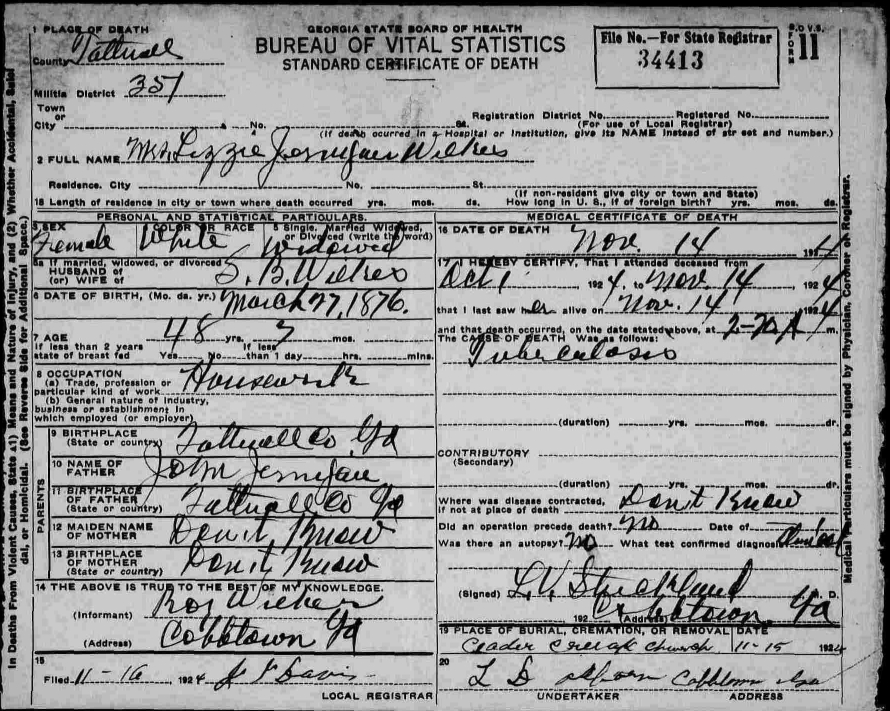 1 PLACE OF DEATH
County Tattnall
Militia District 351
Town
or
City No. St.
GEORGIA STATE BOARD OF HEALTH
BUREAU OF VITAL STATISTICS
STANDARD CERTIFICATE OF DEATH
File No.—For State Registrar
34413
FORM 11
Registration District No. Registered No.
(For use of Local Registrar)
(If death ocurred in a Hospital or Institution, give its NAME instead of street and number.)
2 FULL NAME Mrs. Lizzie Jernigan Wilkes
Residence. City No. St.
(If non-resident give city or town and State)
18 Length of residence in city or town where death occurred yrs. mos. ds. How long in U. S., if of foreign birth? yrs. mos. ds.
PERSONAL AND STATISTICAL PARTICULARS.
3 SEX COLOR OR RACE 5 Single, Married Widowed, or Divorced (write the word)
Female White Widowed
5a If married, widowed, or divorced
HUSBAND of
(or) WIFE of S. B. Wilkes
6 DATE OF BIRTH, (Mo. da. yr.) March 27, 1876.
7 AGE 48 yrs. 7 mos.
If less than 2 years If less
state of breast fed Yes No than 1 day hrs. mins.
8 OCCUPATION
(a) Trade, profession or
particular kind of work Housework
(b) General nature of industry,
business or establishment in
which employed (or employer)
PARENTS
9 BIRTHPLACE
(State or country) Tattnall Co Ga
10 NAME OF
FATHER John Jernigan
11 BIRTHPLACE
OF FATHER
(State or country) Tattnall Co Ga
12 MAIDEN NAME
OF MOTHER Don't Know
13 BIRTHPLACE
OF MOTHER
(State or country) Don't Know
14 THE ABOVE IS TRUE TO THE BEST OF MY KNOWLEDGE.
(Informant) Roy Wilkes
(Address) Cobbtown Ga
15
Filed 11-16, 1924 Davis
LOCAL REGISTRAR
MEDICAL CERTIFICATE OF DEATH
16 DATE OF DEATH Nov. 14 1924
17 I HEREBY CERTIFY, That I attended deceased from
Oct 1 1924. to Nov. 14, 1924
that I last saw her alive on Nov. 14 1924
and that death occurred, on the date stated above, at m.
The CAUSE OF DEATH Was as follows:
Tuberculosis
(duration) yrs. mos. dr.
CONTRIBUTORY
(Secondary)
(duration) yrs. mos. dr.
Where was disease contracted,
if not at place of death Don't Know
Did an operation precede death? no Date of
Was there an autopsy? no What test confirmed diagnosis Clinical
(Signed) L. V. Strickland M. D.
192 (Address) Cobbtown Ga
19 PLACE OF BURIAL, CREMATION, OR REMOVAL DATE
Ceader Creeak Church 11-15 1924
20
L D Cobbtown Ga
UNDERTAKER ADDRESS
In Deaths From Violent Causes, State (1) Means and Nature of Injury, and (2) Whether Accidental, Suicidal, or Homicidal. (See Reverse Side for Additional Space.)
Medical Particulars must be signed by Physician, Coroner or Registrar.